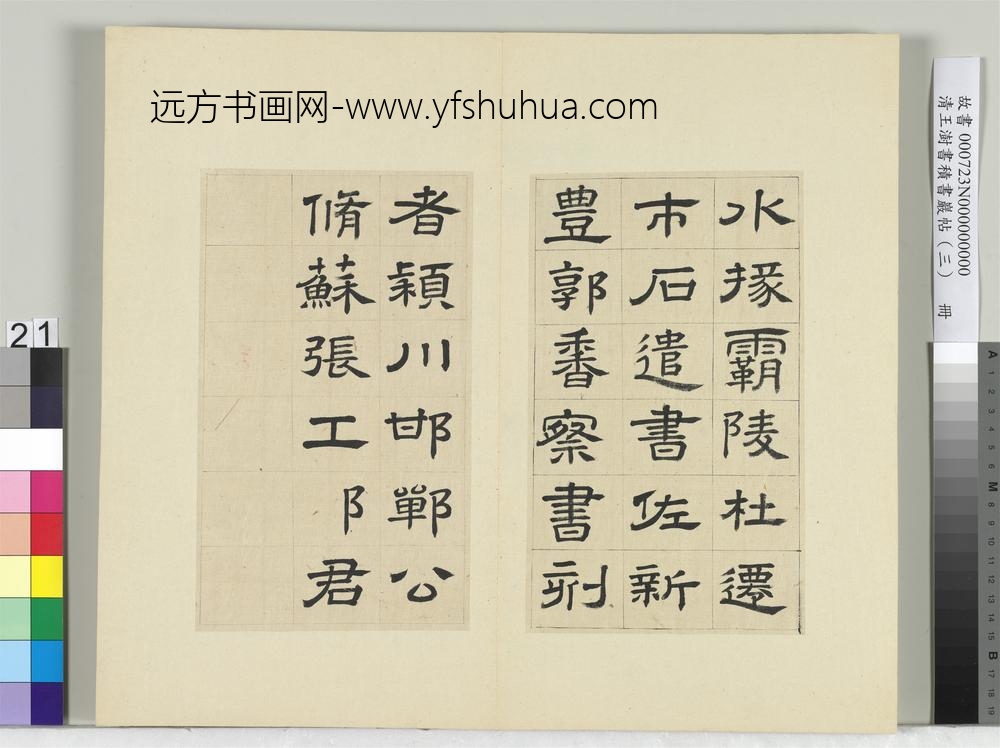 远方书画网-www.yfshuhua.com
水掾霸陵杜遷
市石遣書佐新
豊郭香察書刻
者潁川邯鄲公
脩蘇張工阝君
故書 000723N000000000
清王澍書積書巖帖(三) 冊
21
A 1 2 3 4 5 6 M 8 9 10 11 12 13 14 15 B 17 18 19